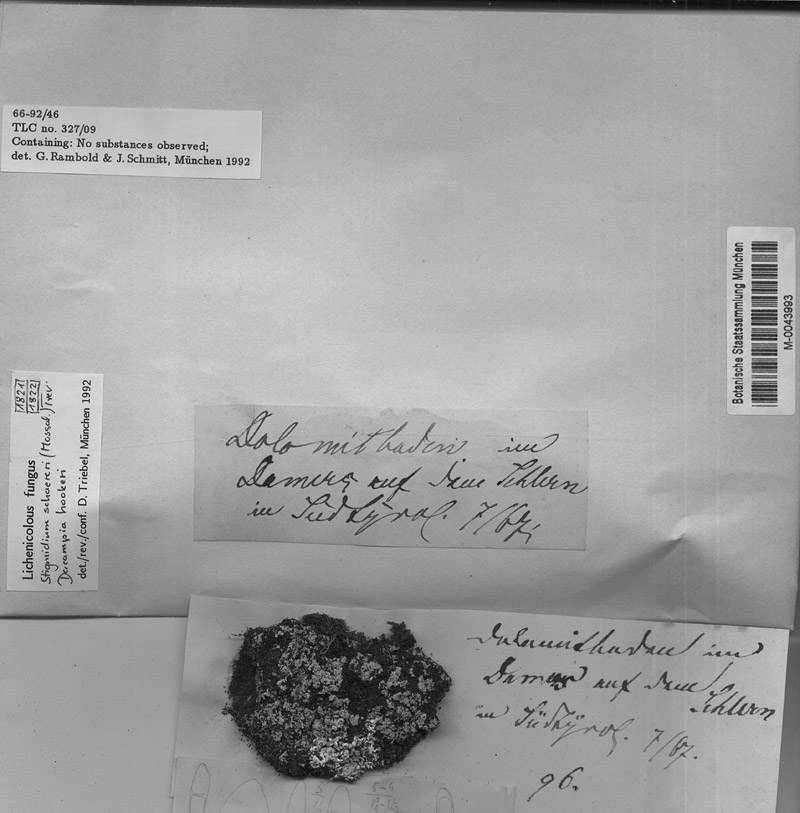 66-92/46
TLC no. 327/09
Containing: No substances observed;
det. G. Rambold & J. Schmitt, München 1992
Botanische Staatssammlung München
M-0043993
1821
1822
Lichenicolous fungus
Stigmidium schaereri (Massal.) Trev.
Dacampia hookeri
det./rev./conf. D. Triebel, München 1992
Dolomitboden im
auf dem Schlern
in Südtyrol. 7/67.
Dolomitboden im
auf dem Schlern
in Südtyrol. 7/67.
96.